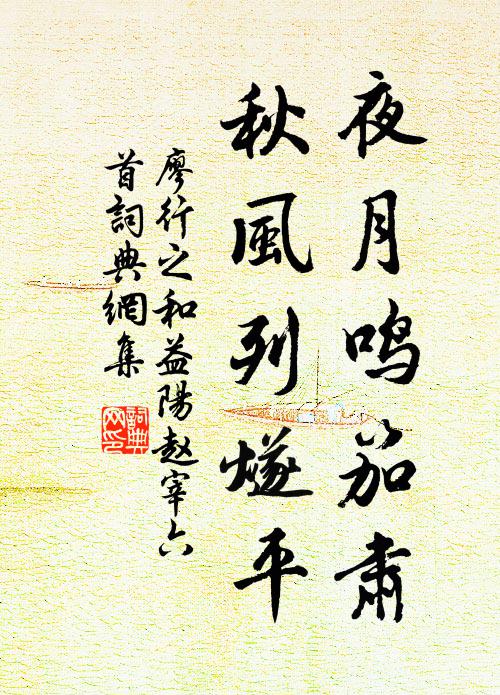 夜月鸣笳肃
秋風列燧平
廖行之和益陽赵宰六
首詞典網集
詞典
网印